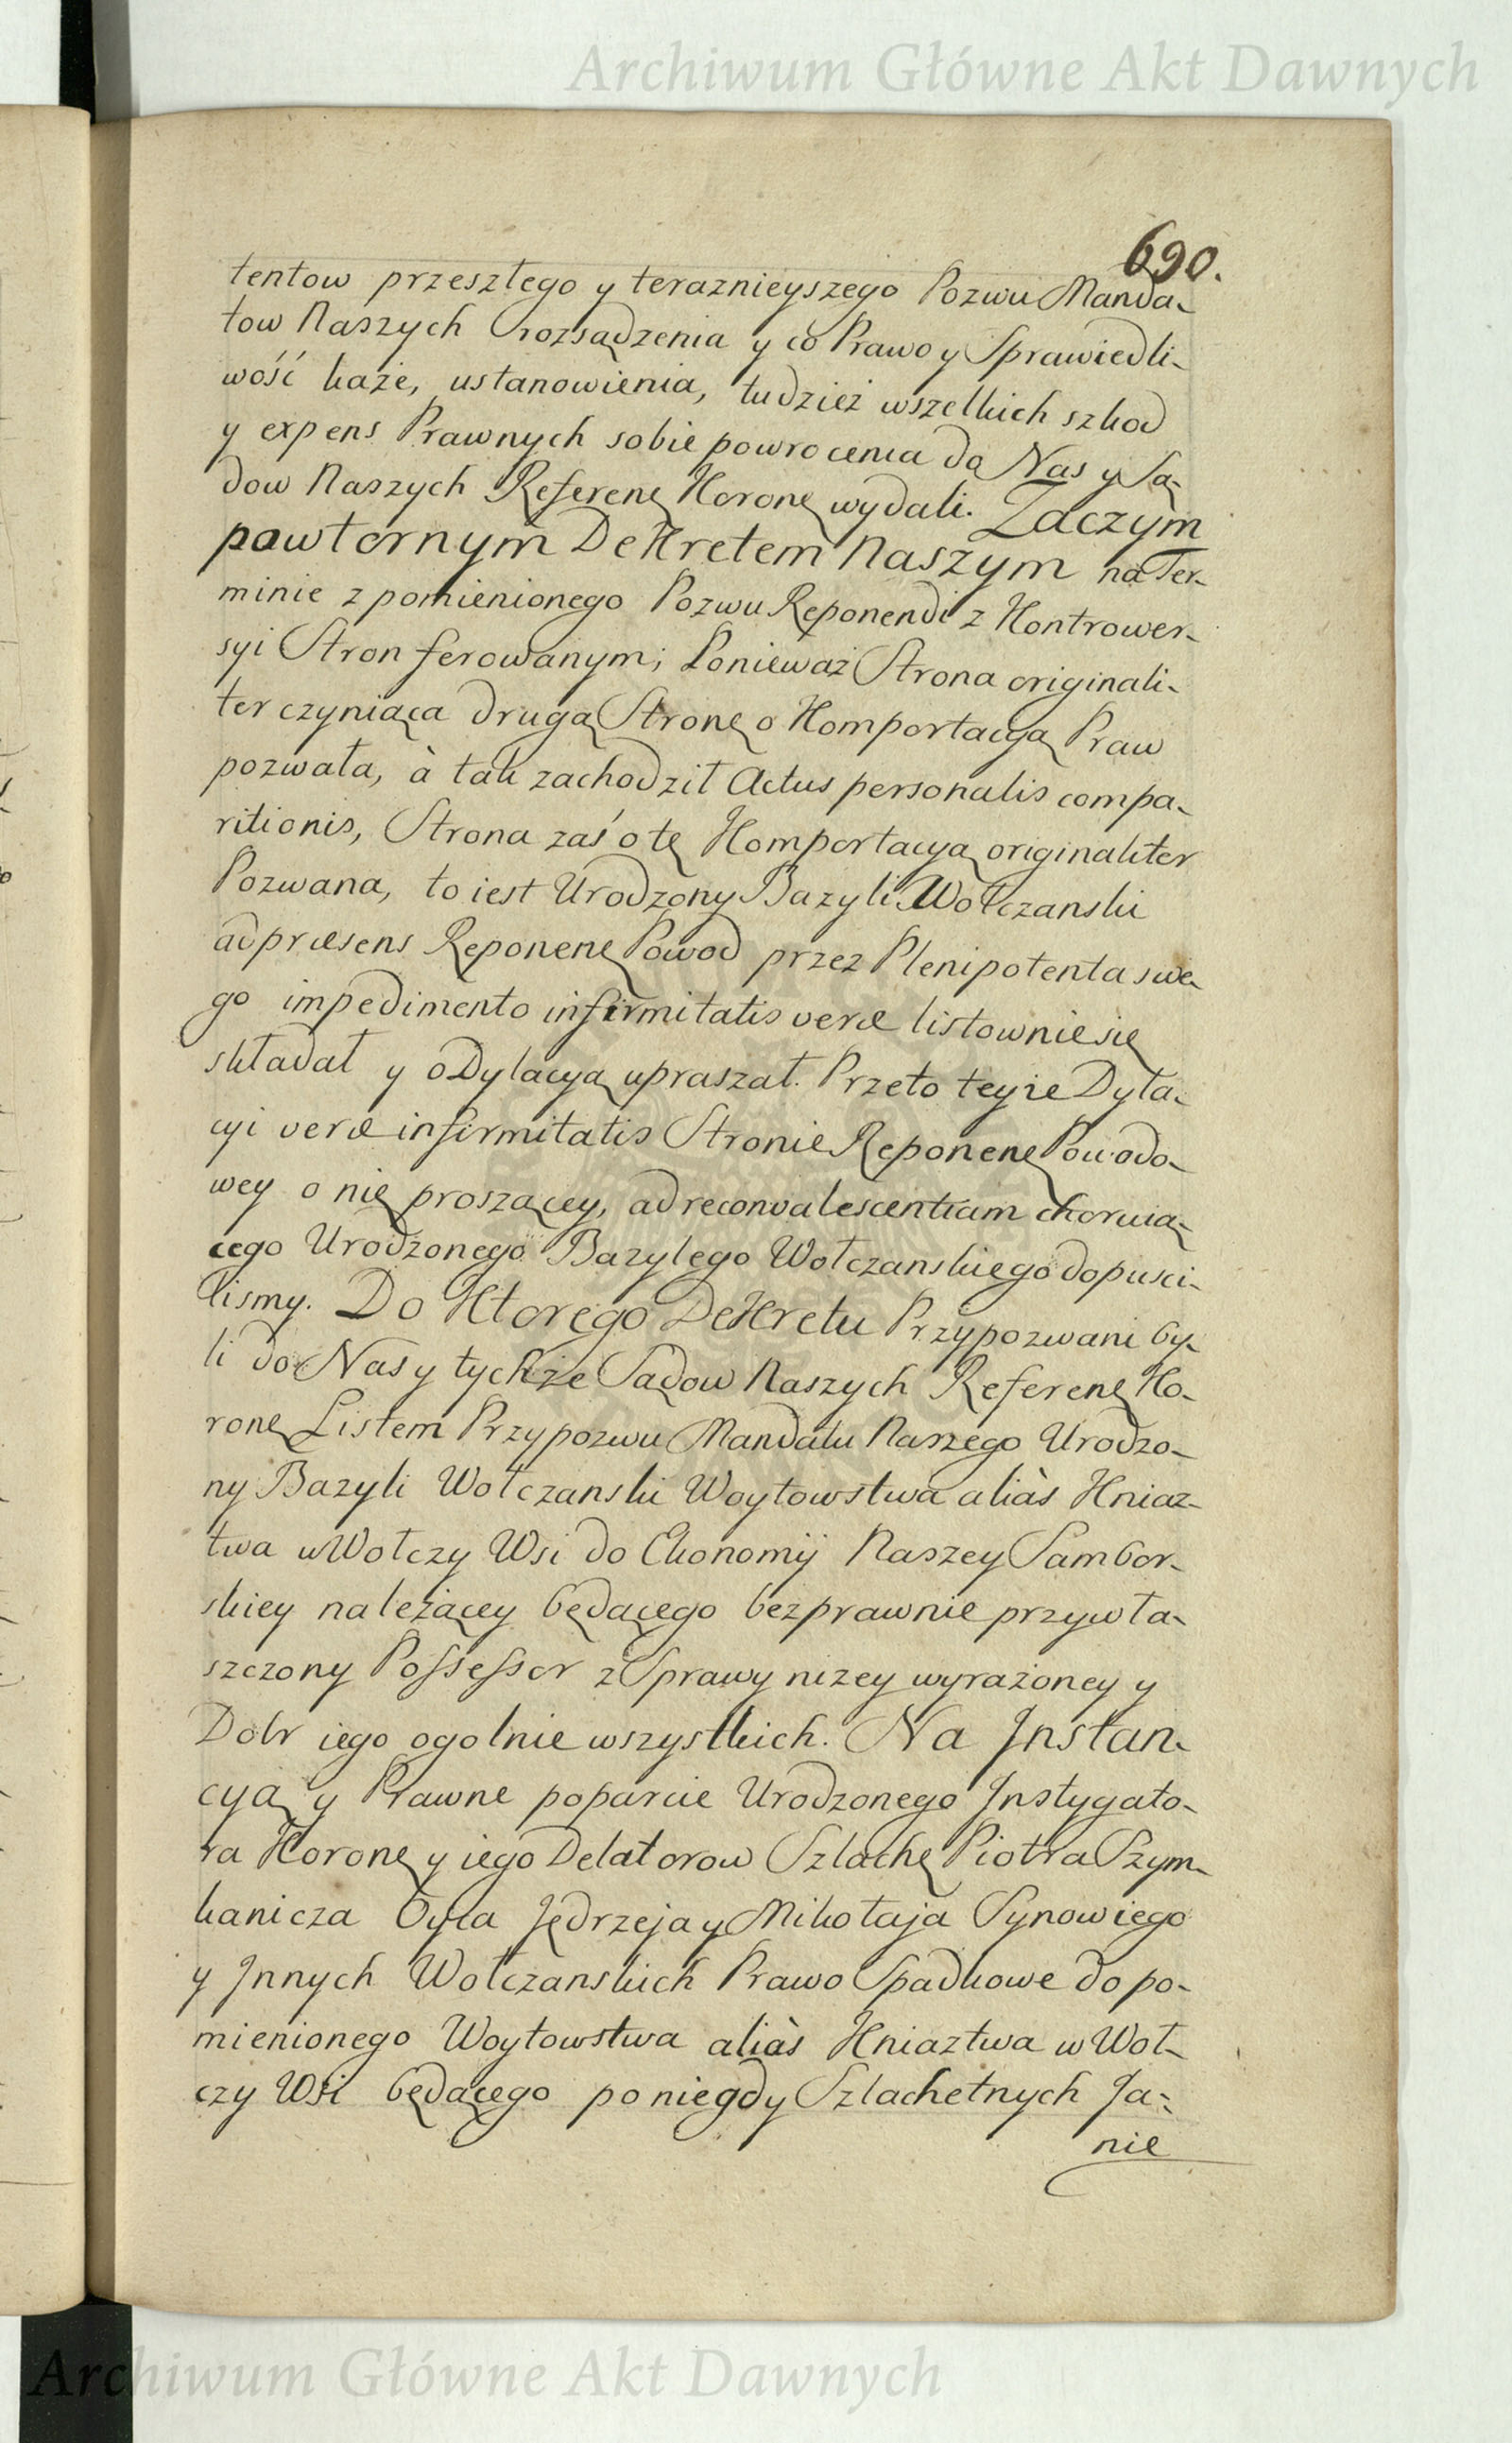 Archiwum Główne Akt Dawnych
690.
tentow przeszłego y teraznieyszego Pozwu Manda-
tow Naszych rozsądzenia y co Prawo y Sprawiedli-
wość każe, ustanowienia, tudzież wszelkich szkod
y expens Prawnych sobie powrocenia do Nas y Są-
dow Naszych Referenę Koronę wydali. Zaczym
powtornym Dekretem Naszym na Ter-
minie zpomienionego Pozwu Reponendi z Kontrower-
syi Stron ferowanym; Ponieważ Strona originali-
ter czyniąca drugą Stronę o Komportacyą Praw
pozwała, à tak zachodził Actus personalis compa-
ritionis, Strona zaś o tę Komportacyą originaliter
Pozwana, to iest Urodzony Bazyli Wołczanski
ad præsens Reponenę Powod przez Plenipotenta swe-
go impedimento infirmitatis veræ listownie się
składał y o Dylacyą upraszał. Przeto teyże Dyla-
cyi veræ infirmitatis Stronie Reponenę Powodo-
wey o nię proszącey, ad reconvalescentiam choruią-
cego Urodzonego Bazylego Wołczanskiego dopusci-
lismy. Do Ktorego Dekretu Przypozwani by-
li do Nas y tychże Sądow Naszych Referenę Ko-
ronę Listem Przypozwu Mandatu Naszego Urodzo-
ny Bazyli Wołczanski Woytowstwa aliàs Kniaz-
twa w Wołczy Wsi do Ekonomij Naszey Sambor-
skiey należącey będącego bezprawnie przywła-
szczony Possessor z Sprawy nizey wyrażoney y
Dobr iego ogolnie wszystkich. Na Instan-
cyą y Prawne poparcie Urodzonego Instygato-
ra Koronę y iego Delatorow Szlachę Piotra Szym-
kanicza Oyca Jędrzeja y Mikołaja Synow iego
y Innych Wołczanskich Prawo Spadkowe do po-
mienionego Woytowstwa aliàs Kniaztwa w Woł-
czy Wsi będącego po niegdy Szlachetnych Ja-
nie
Archiwum Główne Akt Dawnych